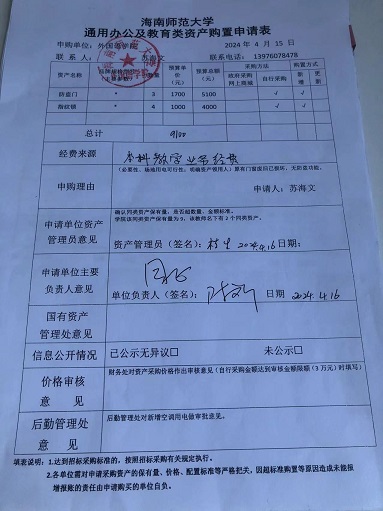 海南师范大学
通用办公及教育类资产购置申请表
申购单位：外国语学院 2024 年 4 月 15 日
联 系 人： 苏海文 联系电话：13976078478
资产名称 数量 预算单价（元） 预算总额（元） 采购方法 购置方式
政府采购网上商城 自行采购 新增 更新
防盗门 * 3 1700 5100 √ √
指纹锁 * 4 1000 4000 √ √
总计 9100
经费来源 本科教学业务经费
申购理由 （必要性、场地用电可行性，明确资产领用人）原有门窗面间已损坏，无防盗功能。
申请人：苏海文
申请单位资产管理员意见 确认同类资产保有量，是否超数量、金额标准。
学院该同类资产保有量为 0，该教师名下有 2 个同类资产。
资产管理员（签名）： 2024.4.16 日期：
申请单位主要负责人意见 同意
单位负责人（签名）： 日期 2024.4.16
国有资产管理处意见
信息公开情况 已公示无异议□ 未公示□
价格审核意见 财务处对资产采购价格作出审核意见（自行采购金额达到审核金额限额（3 万元）时填写）
后勤管理处意 见 后勤管理处对新增空调用电做审批意见。
填表说明：1.达到招标采购标准的，按照招标采购有关规定执行。
2.各单位需对申请采购资产的保有量、价格、配置标准等严格把关，因超标准购置等原因造成未能报
增报账的责任由申请购买的单位自负。